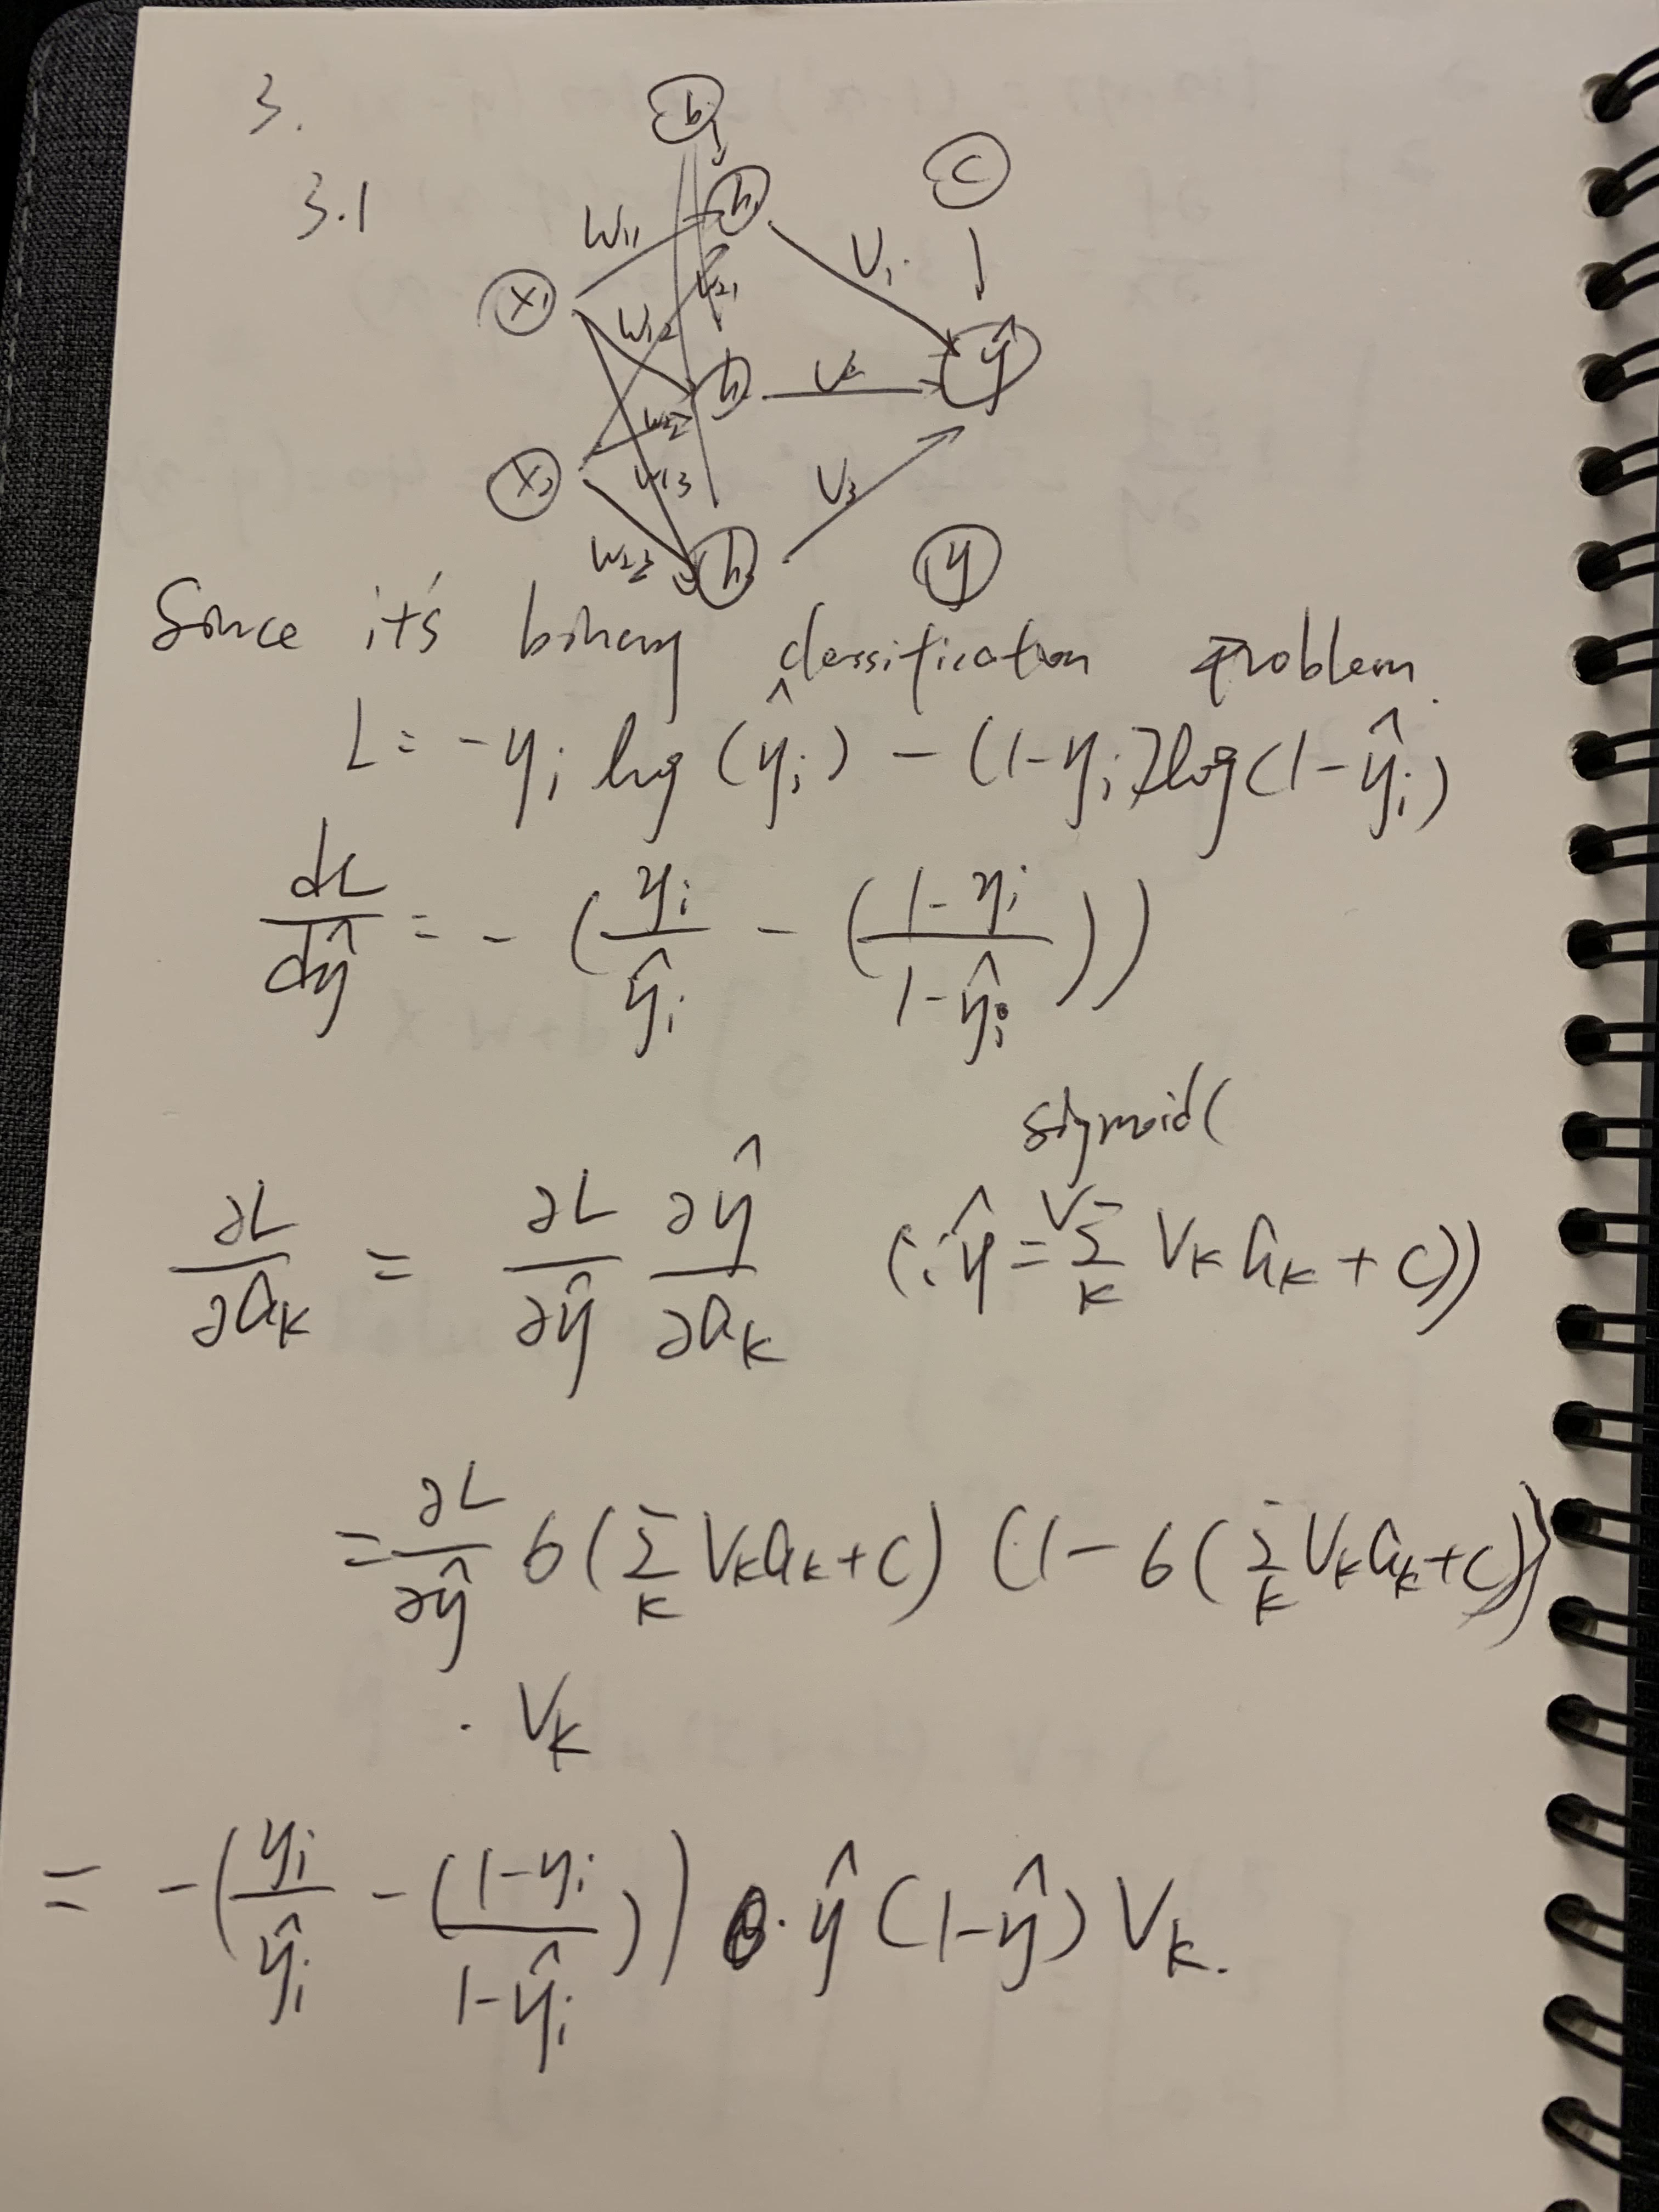 3.
3.1
b
h₁
c
W₁₁
V₁
x₁
W₂₁
W₁₂
ŷ
h₂
V₂
W₂₂
x₂
W₁₃
V₃
W₂₃
h₃
y
Since it's binary classification problem.
L = -yᵢ log(ŷᵢ) - (1-yᵢ)log(1-ŷᵢ)
dL/dŷ = -(yᵢ/ŷᵢ - ((1-yᵢ)/(1-ŷᵢ)))
sigmoid(
∂L/∂aₖ = ∂L/∂ŷ ∂ŷ/∂aₖ (∵ŷ = Σₖ Vₖ aₖ + c))
= ∂L/∂ŷ 6(Σₖ Vₖaₖ+c) (1-6(Σₖ Vₖaₖ+c))
· Vₖ
= -(yᵢ/ŷᵢ - ((1-yᵢ)/(1-ŷᵢ))) · ŷ(1-ŷ)Vₖ.